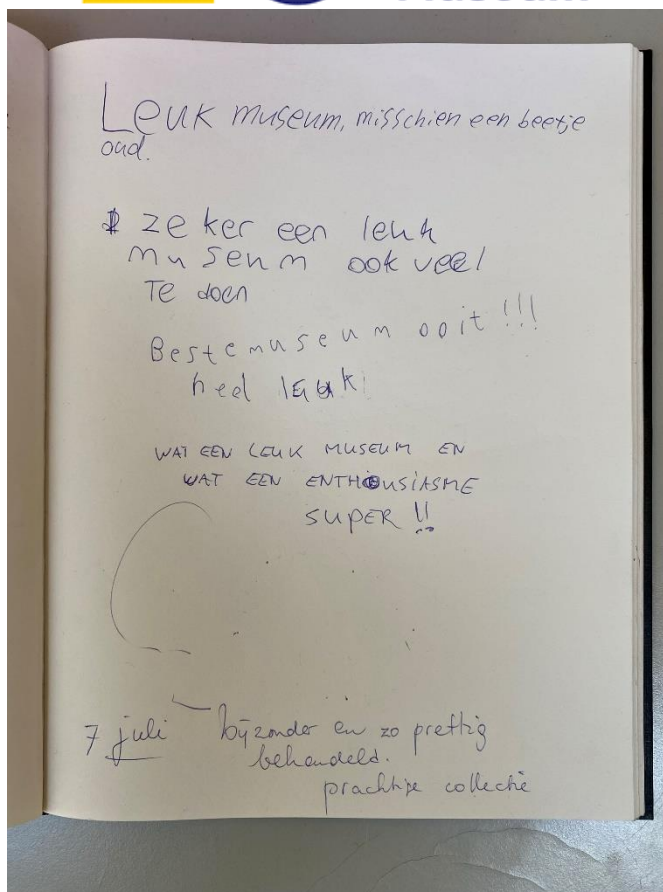 Leuk museum, misschien een beetje
oud.
zeker een leuk
museum ook veel
Te doen
Beste museum ooit!!!
heel leuk
WAT EEN LEUK MUSEUM EN
WAT EEN ENTHOUSIASME
SUPER !!
7 juli bijzonder en zo prettig
behandeld.
prachtige collectie